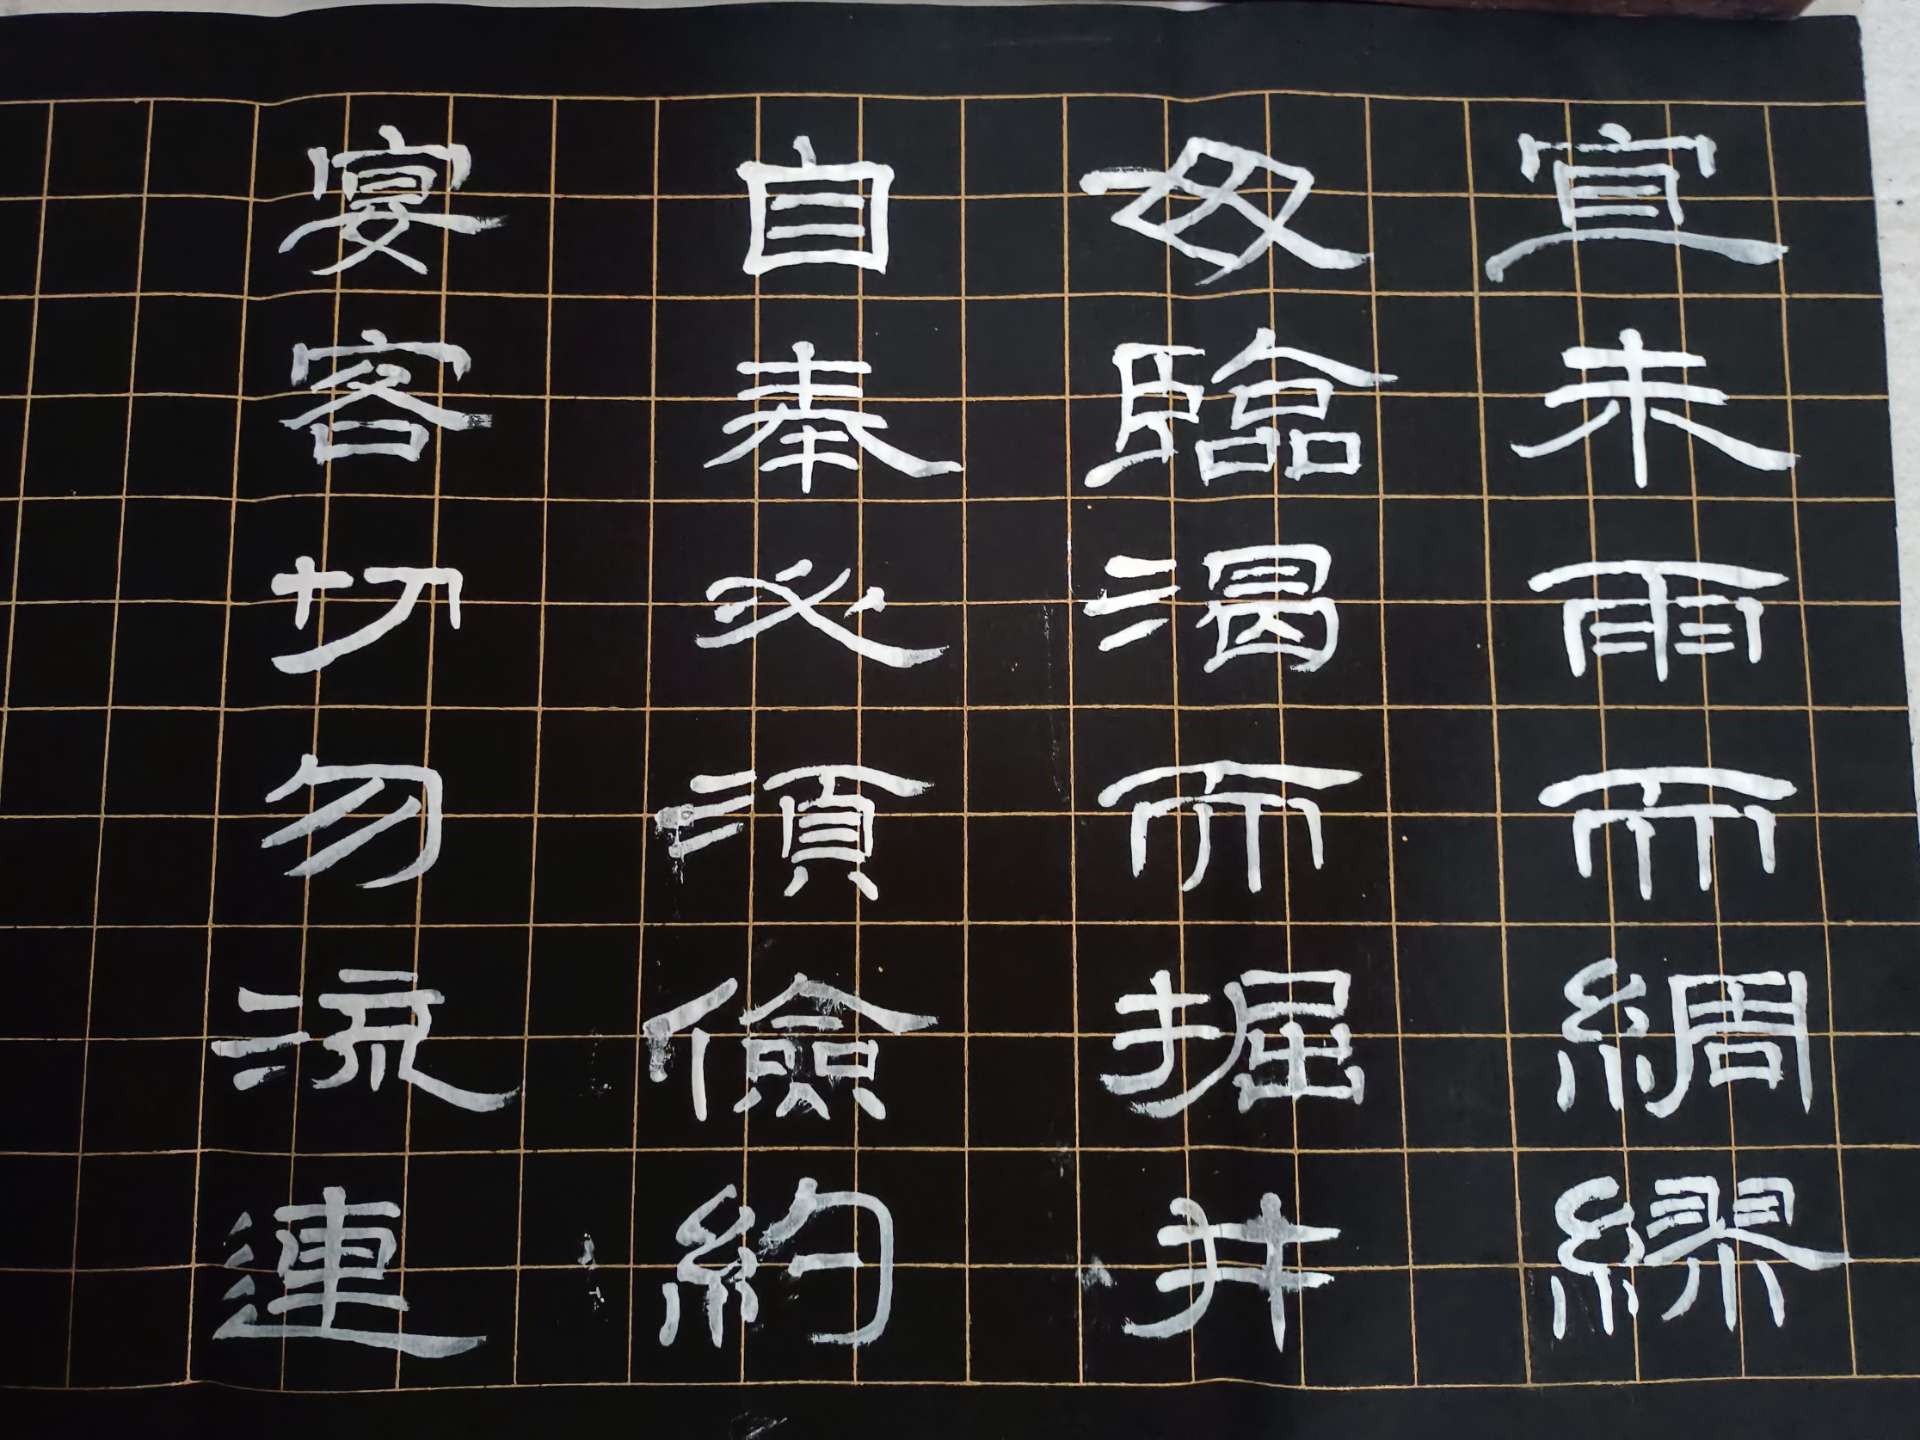 宜未雨而綢繆
毋臨渴而掘井
自奉必須儉約
宴客切勿流連